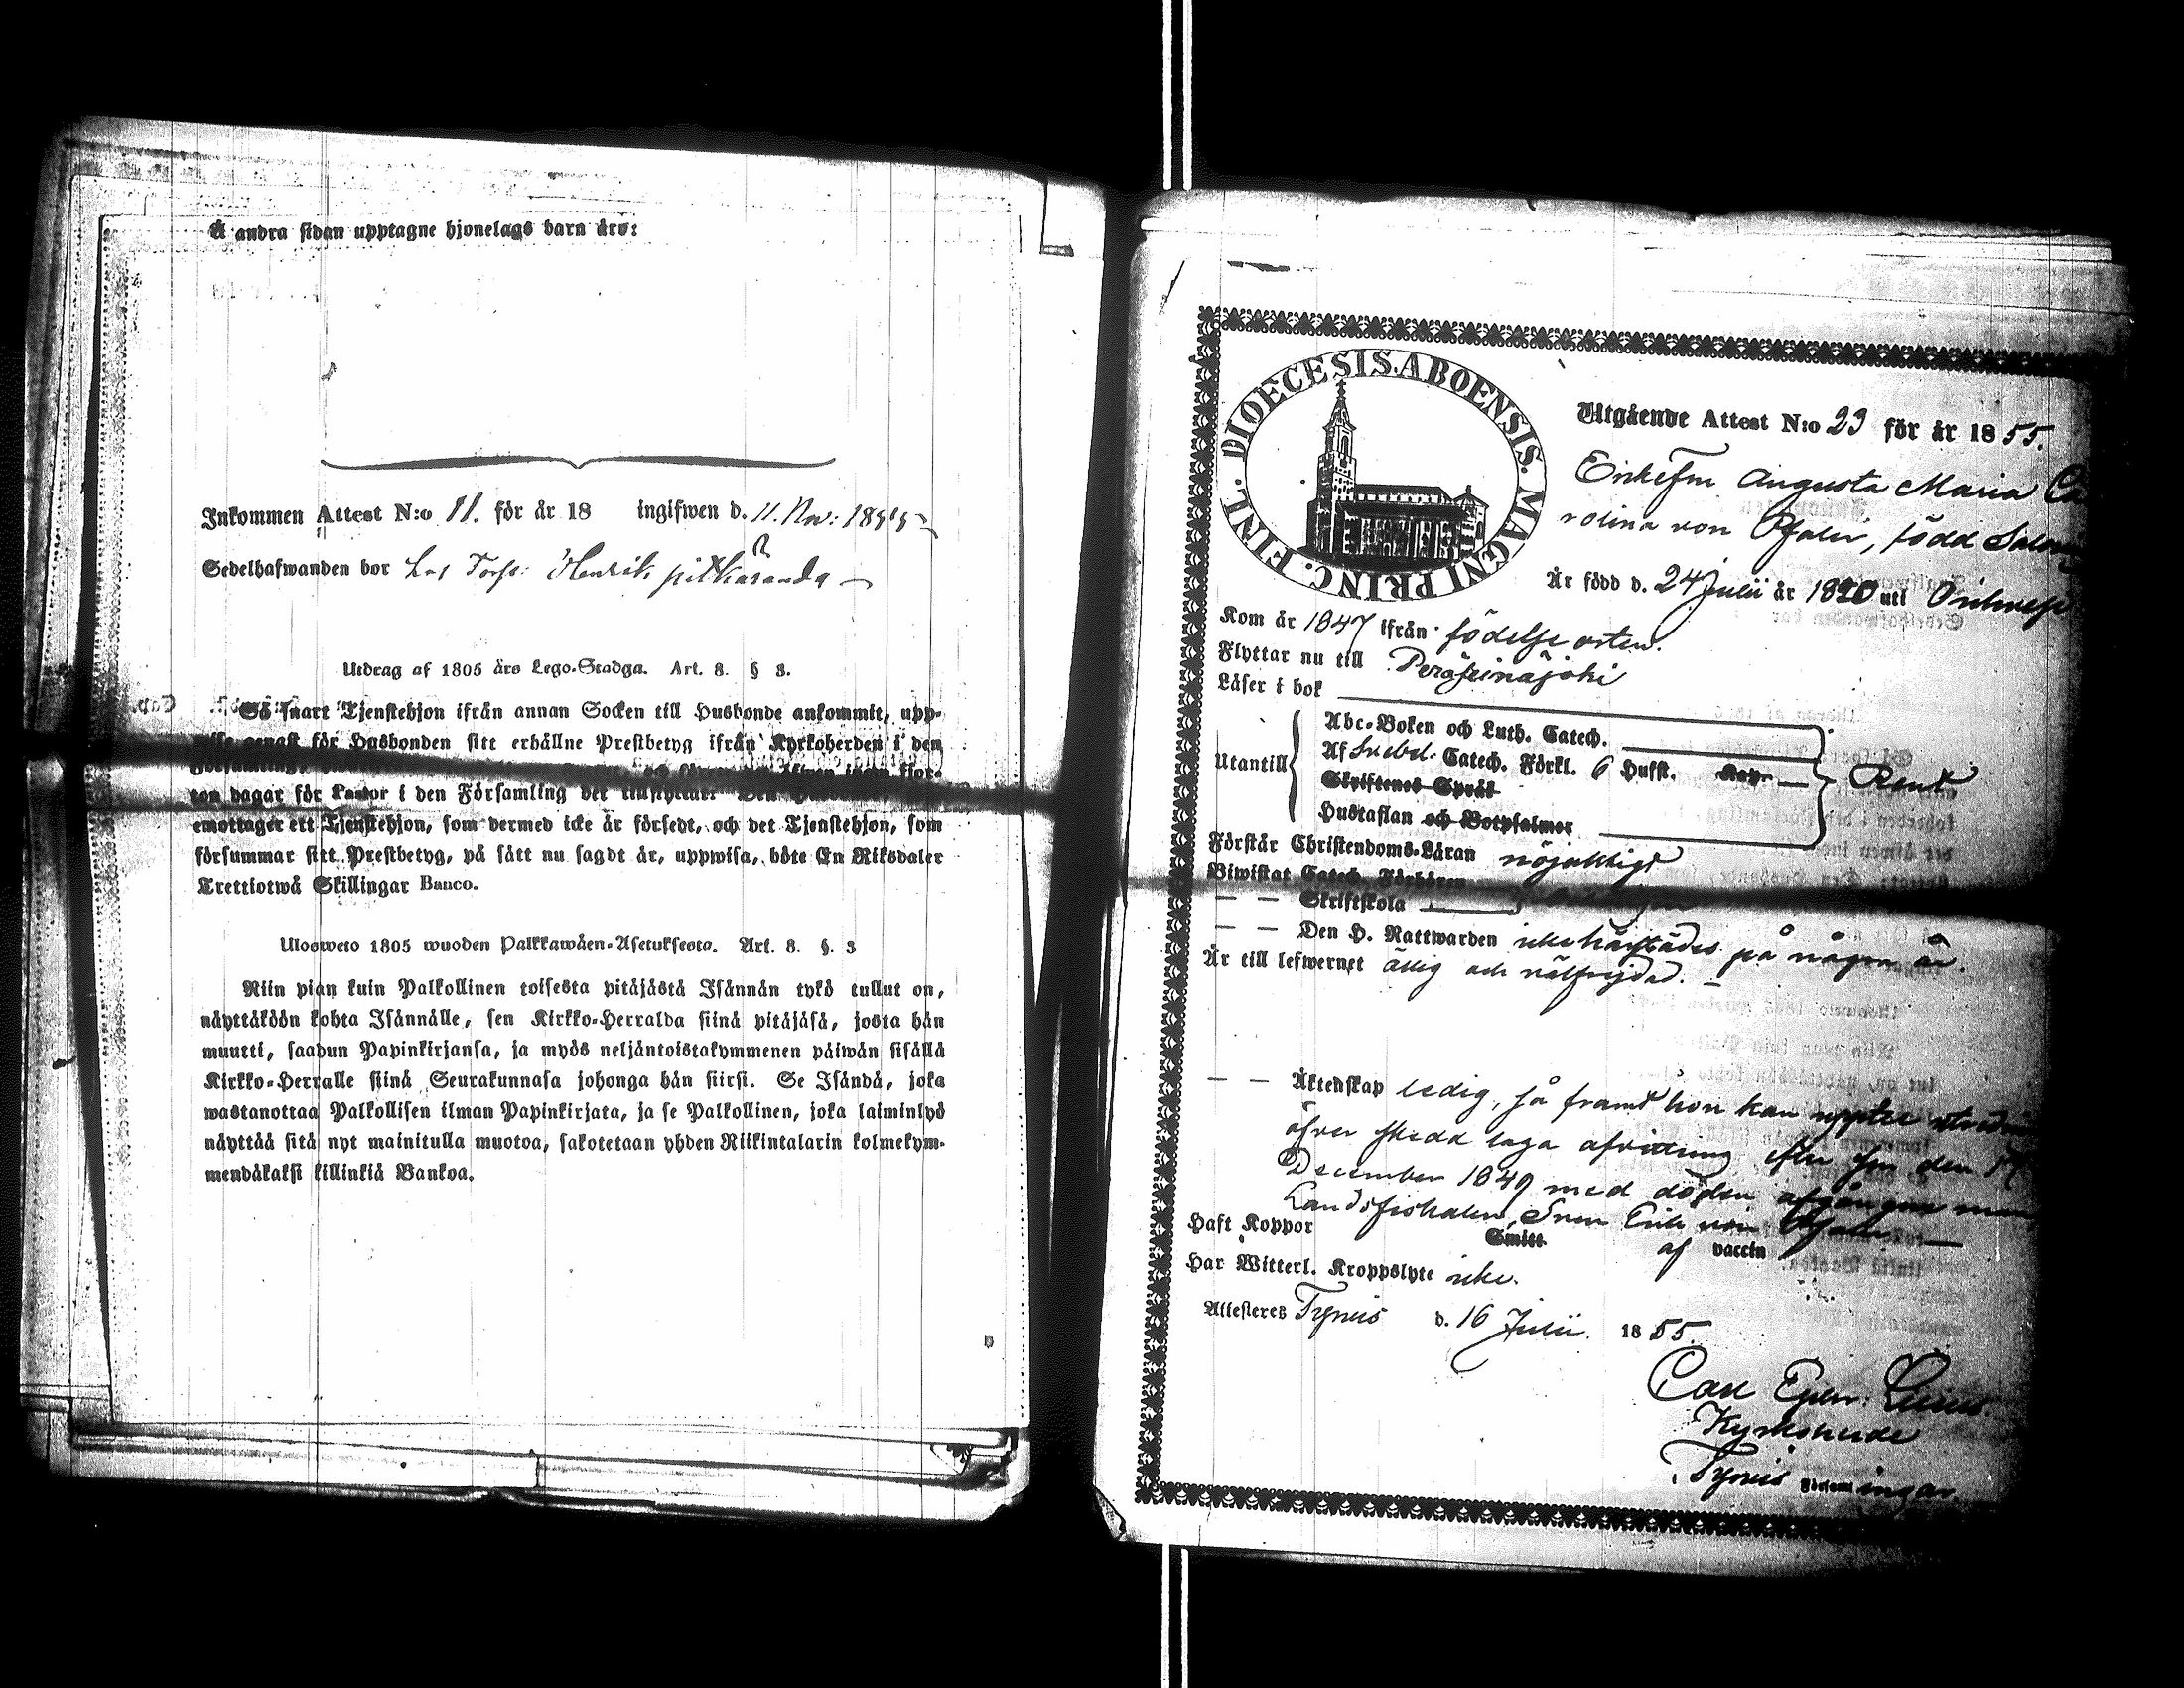 Å andra sidan upptagne hjonelags barn äro:
Inkommen Attest N:o 11. för år 18 ingifwen d. 11. Nov: 1855
Sedelhafwanden bor hos Torp: Henrik
Utdrag af 1805 års Lego-Stadga. Art. 8. § 3.
Så snart Tjenstehjon ifrån annan Socken till Husbonde ankommit, upp-
genast för Husbonden sitt erhållne Prestbetyg ifrån Kyrkoherden i den
ton dagar för Pastor i den Församling
emottager ett Tjenstehjon, som dermed icke är försedt, och det Tjenstehjon, som
försummar sitt Prestbetyg, på sätt nu sagdt är, uppwisa, böte En Riksdaler
Trettiotwå Skillingar Banco.
Ulosweto 1805 wuoden Palkkawäen-Asetuksesta. Art. 8. §. 3
Niin pian kuin Palkollinen toisesta pitäjästä Isännän tykö tullut on,
näyttäköön kohta Isännälle, sen Kirkko-Herralda siinä pitäjäsä, josta hän
muutti, saadun Papinkirjansa, ja myös neljäntoistakymmenen päiwän sisällä
Kirkko-Herralle siinä Seurakunnasa johonga hän siirsi. Se Isändä, joka
wastanottaa Palkollisen ilman Papinkirjata, ja se Palkollinen, joka laiminlyö
näyttää sitä nyt mainitulla muotoa, sakotetaan yhden Riikintalarin kolmekym-
mendäkaksi killinkiä Bankoa.
DIOECESIS. ABOENSIS. MAGNI PRINC. FINL.
Utgående Attest N:o 23 för år 1855.
Enkefru Augusta Maria Ca
rolina von Pfaler, född
Är född d. 24 Julii år 1820 uti
Kom år 1847 ifrån födelse orten.
Flyttar nu till Peräseinäjoki
Läser i bok
Utantill
Abc-Boken och Luth. Catech.
Af Svebel. Catech. Förkl. 6 Hufst. Kap.
Skriftenes Språk
Hustaflan och Botpsalmer
Rent
Förstår Christendoms-Läran nöjaktigt
Biwistat Catech. Förhören
— — Skriftskola
— — Den H. Nattwarden icke härstädes på några år.
Är till lefwernet ärlig och välfrejdad.
— — Äktenskap ledig, så framt hon kan uppte
öfver skedd laga afvittring efter sin den
December 1849 med döden afgångne man
Landsfiskalen Sven Erik von Pfaler
Haft Koppor Smitt af vaccin
Har Witterl. Kroppslyte icke.
Attesteras Tyrvis d. 16 Julii 1855.
Carl
Kyrkoherde
Tyrvis Församlingar